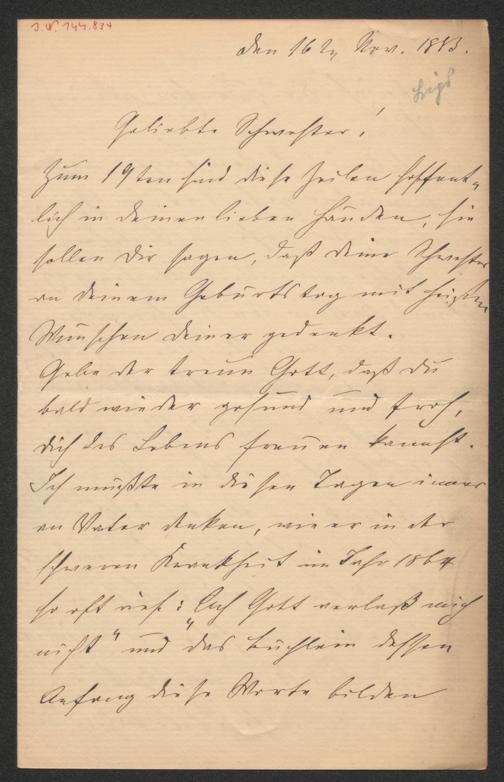 J.N. 744.834
den 16ten Nov. 1883.
Geliebte Schwester!
Zum 19ten sind diese Zeilen hoffent-
lich in deinen lieben Händen, sie
sollen dir sagen, daß deine Schwester
an deinem Geburtstag mit heißen
Wünschen deiner gedenkt.
Gebe der treue Gott, daß du
bald wieder gesund und froh,
dich des Lebens freuen kannst.
Ich mußte in diesen Tagen immer
an Vater denken, wie er in der
schweren Krankheit im Jahr 1864
so oft rief: "Ach Gott verlaß mich
nicht" und das Büchlein dessen
Anfang diese Worte bilden